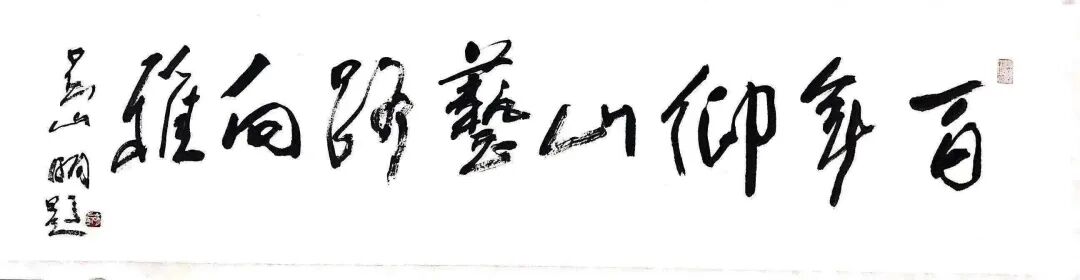 百年仰山藝路向雅
吴山明題